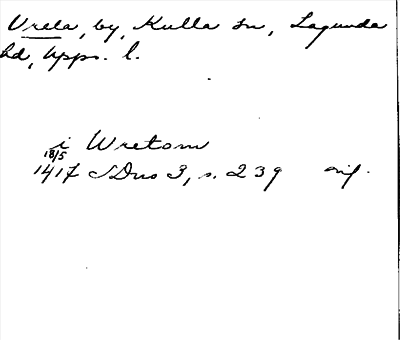 Vrela, by, Kulla sn, Lagunda
hd, Upps. l.
i Wretom
18/5
1417 SDns 3, s. 239 orig.